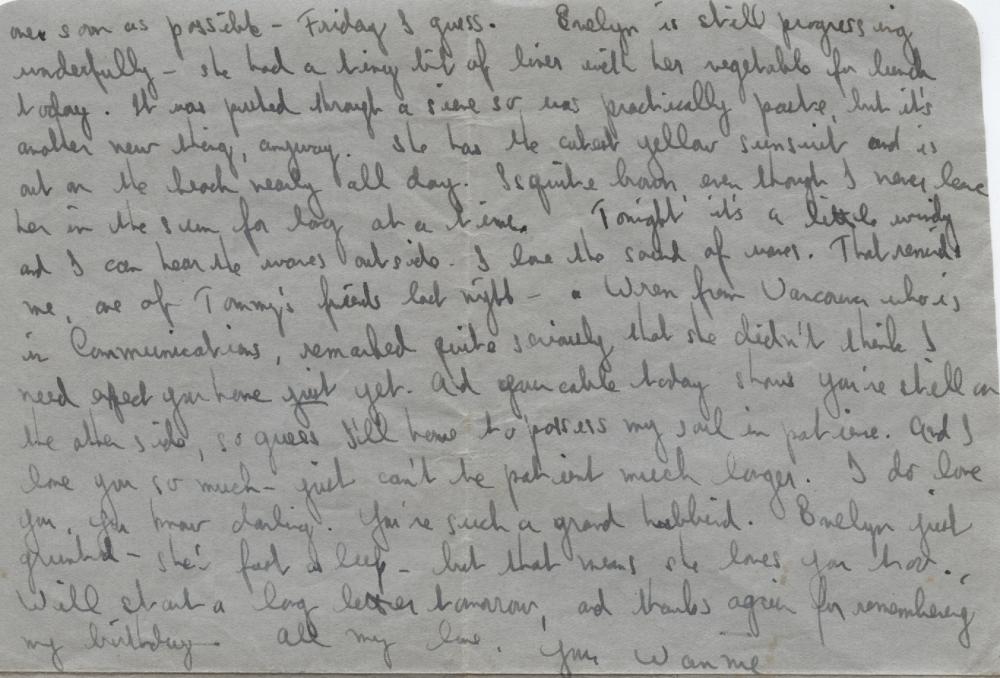 over soon as possible - Friday I guess. Evelyn is still progressing
wonderfully - she had a tiny bit of liver with her vegetable for lunch
today. It was pushed through a sieve so was practically paste, but it's
another new thing, anyway. She has the cutest yellow sunsuit and is
out on the beach nearly all day. Is quite brown even though I never leave
her in the sun for long at a time. Tonight it's a little windy
and I can hear the waves outside. I love the sound of waves. That reminds
me, one of Tommy's friends last night - a Wren from Vancouver who is
in Communications, remarked quite seriously that she didn't think I
need expect you home just yet. And your cable today shows you're still on
the other side, so guess I'll have to possess my soul in patience. And I
love you so much - just can't be patient much longer. I do love
you, you know darling. You're such a grand hubbind. Evelyn just
grunted - she's fast asleep - but that means she loves you too.
Will start a long letter tomorrow, and thanks again for remembering
my birthday. All my love, your